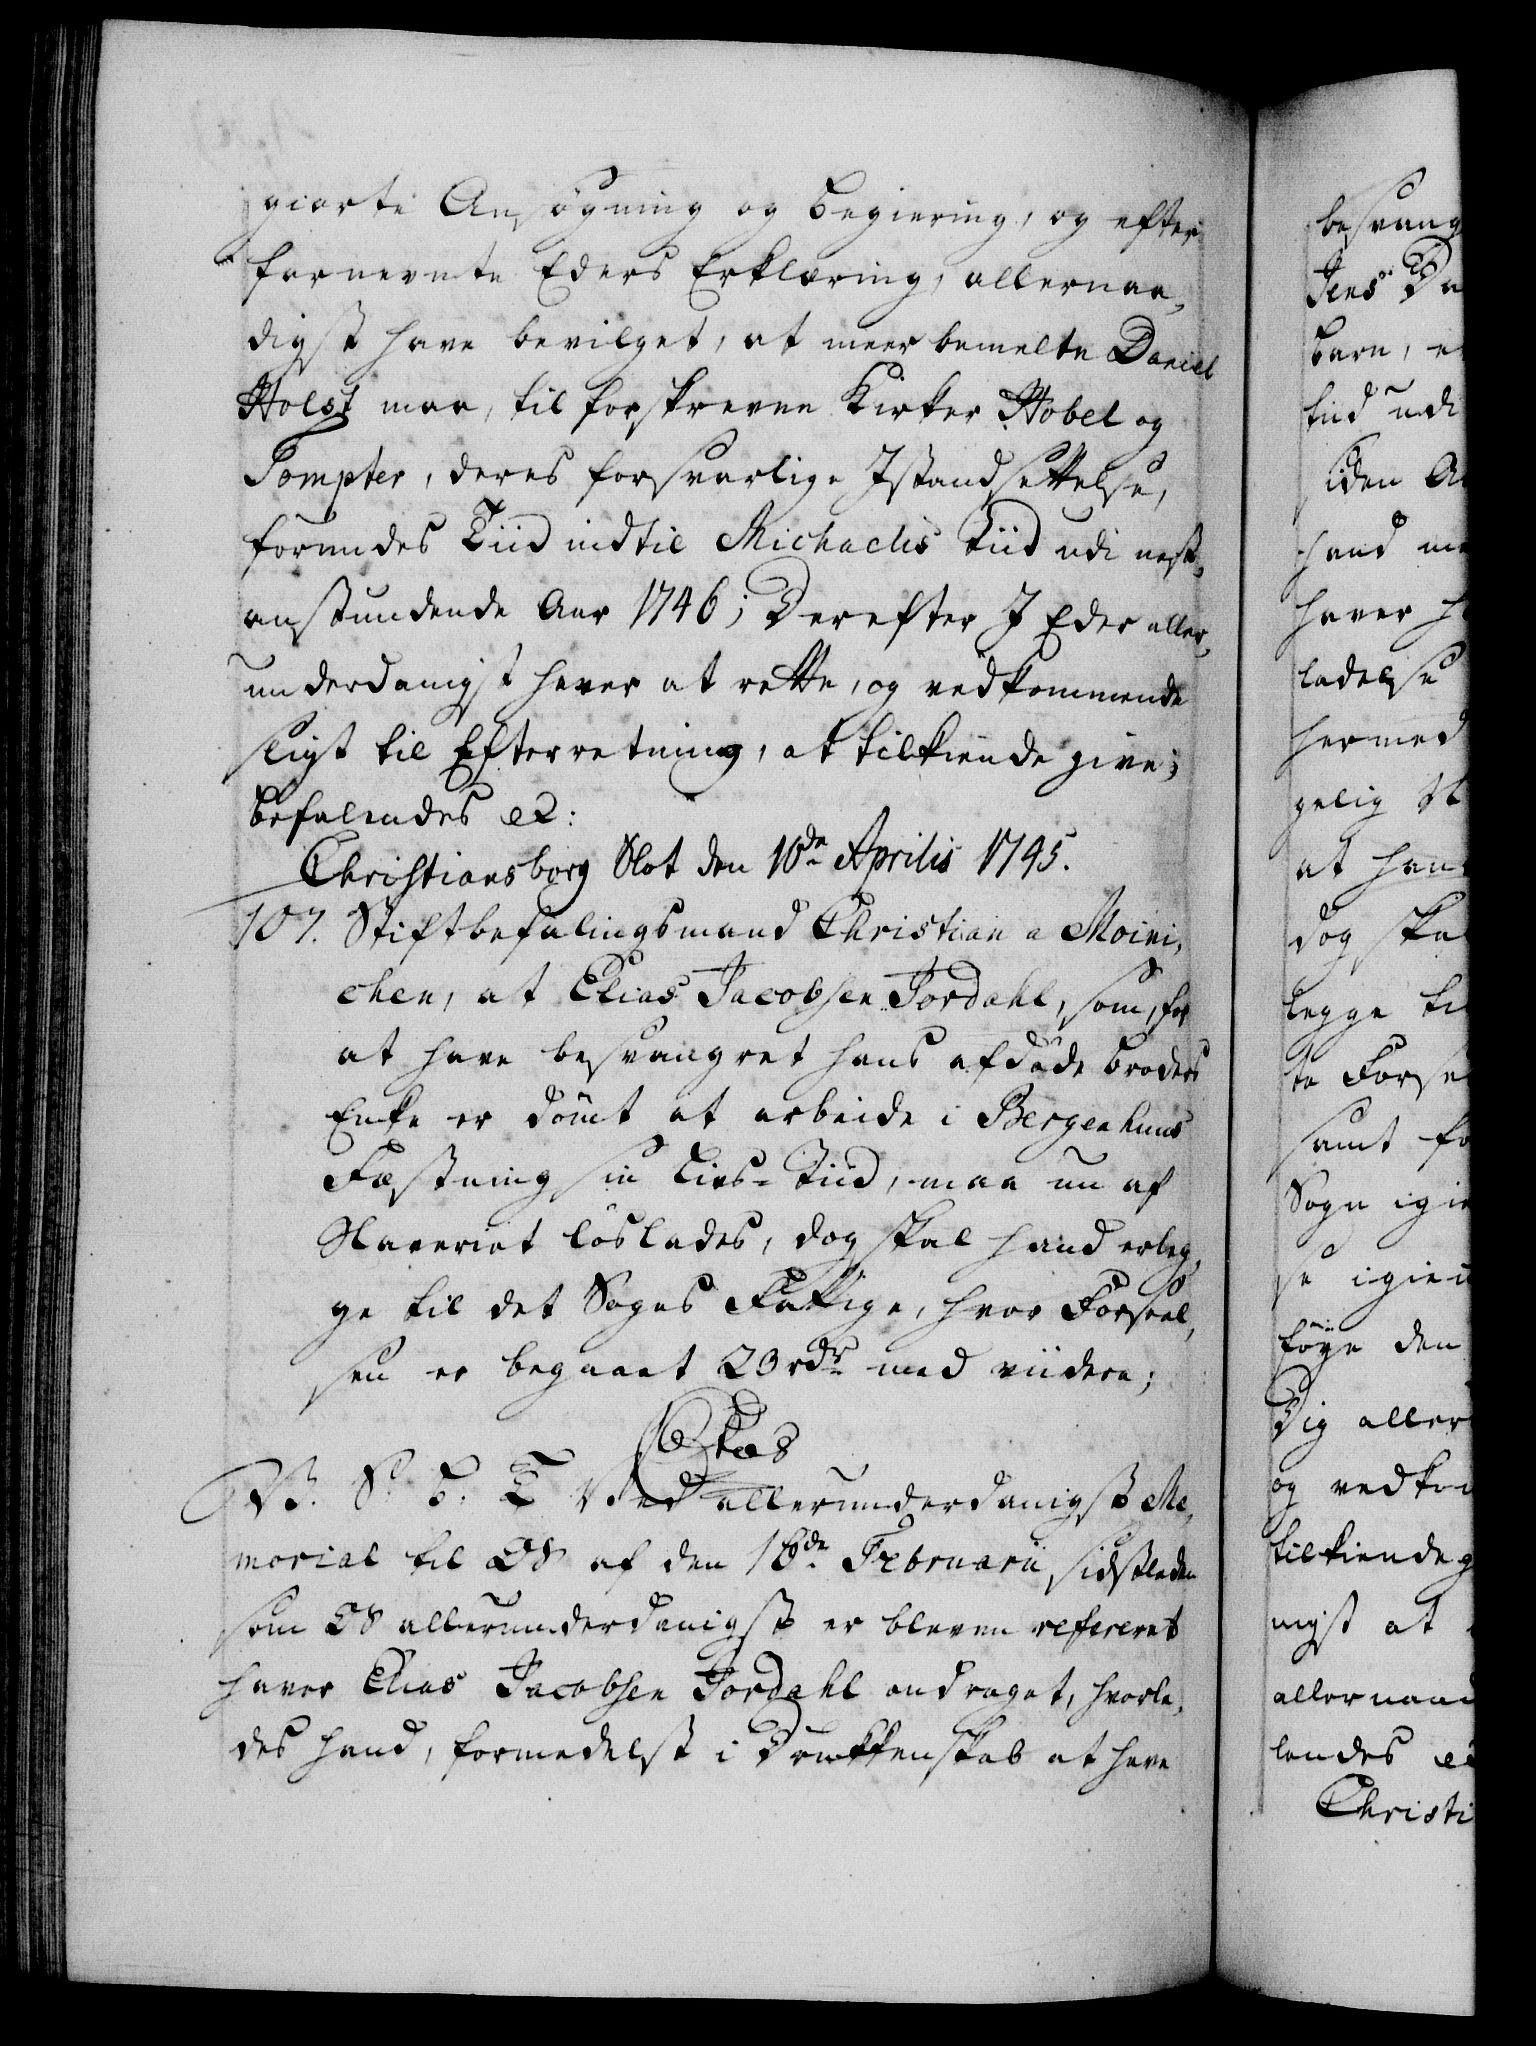 giorte Ansøgning og begiering, og efter
fornevnte Eders Erklæring, allernaa¬
digst have bevilget, at meer bemelte Daniel
Holst maa, til forskrevne Kirker Hobel og
Tompter, deres forsvarlige Istandsettelse,
forundes Tiid indtil Michaelis Tiid udi nest¬
anstundende Aar 1746; Derefter I Eder aller¬
underdanigst haver at rette, og vedkommende
sligt til Efterretning, at tilkiende give;
befalendes etc:
Christiansborg Slot den 10de Aprilis 1745.
107. Stiftbefalingsmand Christian a Moini¬
chen, at Elias Jacobsen Jordahl, som, for
at have besvangret hans afdøde broders
Enke er dømt at arbeide i Bergenhuus
Fæstning sin Livs-Tiid, maa nu af
Slaveriet løslades, dog skal hand erleg¬
ge til det Sogns Fattige, hvor Forseel¬
sen er begaaet 20 rdr med viidere;
C6tus
V. S. G. T. Ved allerunderdanigst Me¬
morial til OS af den 16de Februarii sidstleden
som OS allerunderdanigst er bleven refereret
haver Elias Jacobsen Jordahl andraget, hvorle¬
des hand, formedelst i Drukkenskab at have
besvang
Jens Da
barn, e
tiid udi
iden A
hand me
haver h
ladelse
hermed
gelig N
at hand
dog skal
legge til
te Forse
samt fo
Sogn igie
se igien
føye den
Dig aller
og vedkom
tilkiende g
nigst at
allernaad
lendes etc
Christi